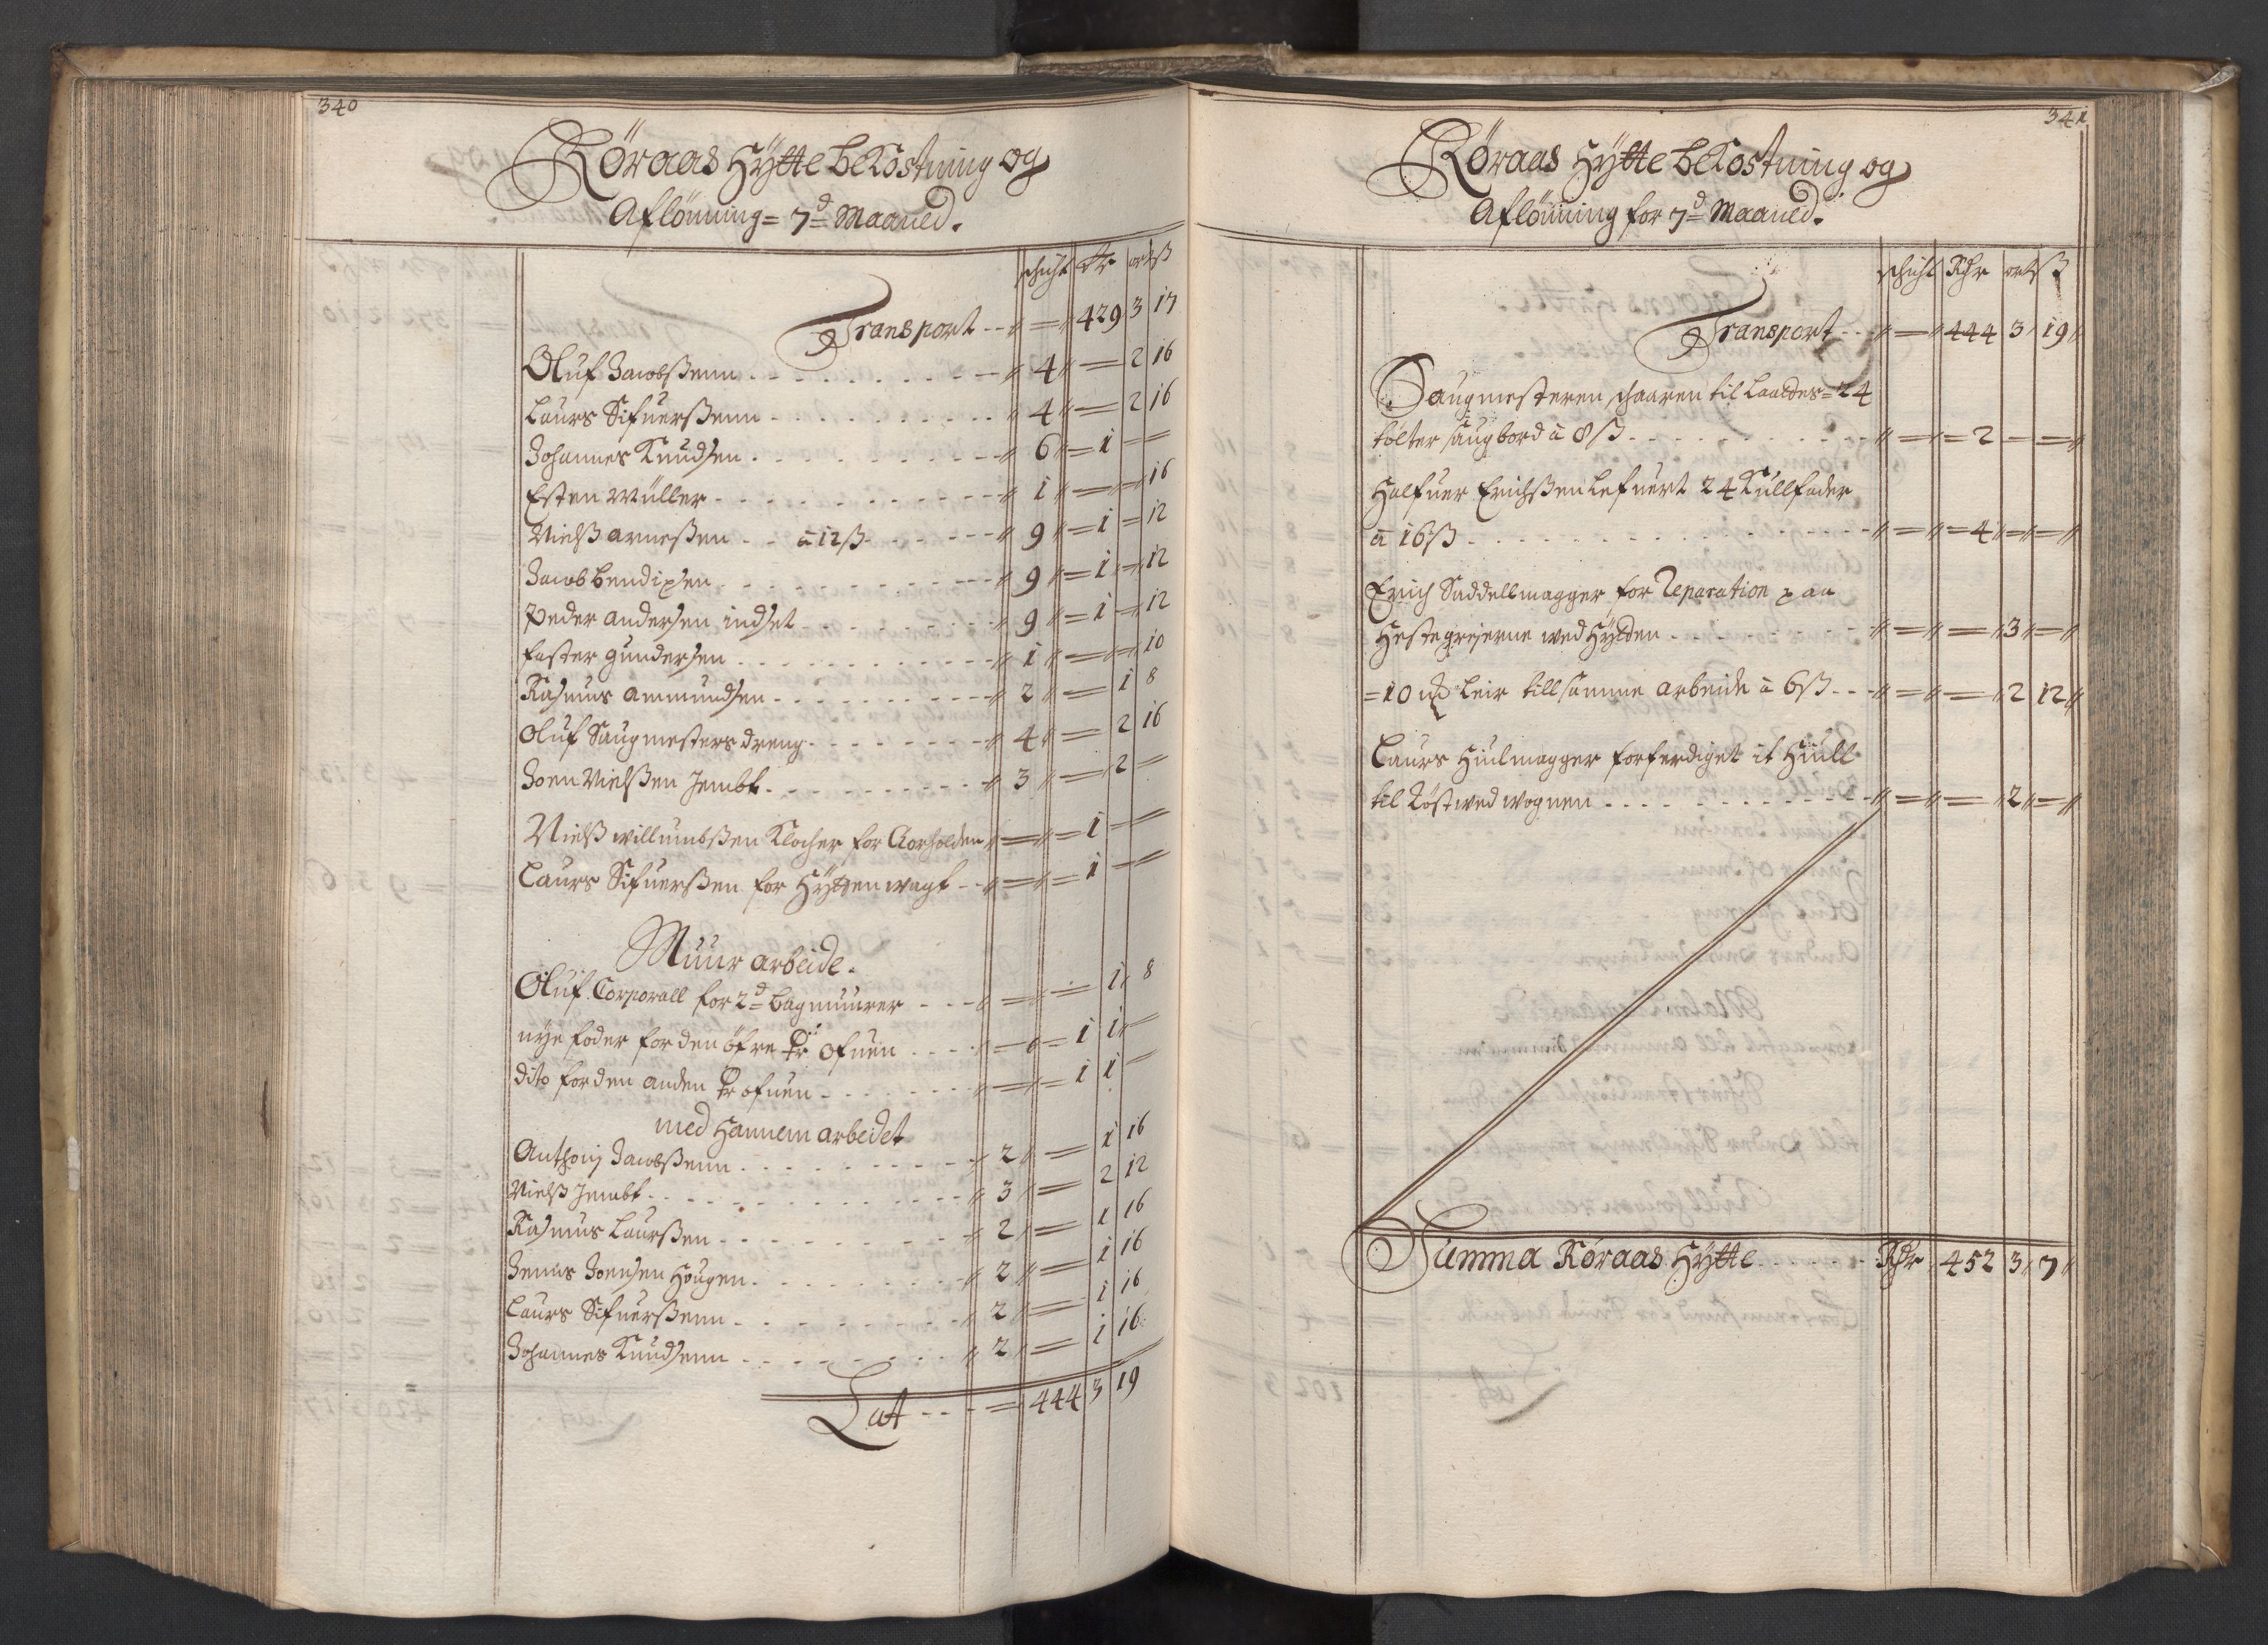 340
Röraas Hÿtte beKostning og
Aflönning = 7d Maaned.
schicht Rdr ort ß
Transport - - 〃 = 〃 429 3 17
Oluf Jacobßenn - - - 〃 4 〃 = 2 16
Laurs Sifuerßenn - - - 〃 4 〃 = 2 16
Johannes Knudsen - - - 〃 6 〃 = 1 =
Esten Müller - - - 〃 1 〃 = = 16
Nielß Arneßen - - à 12 ß - - - 〃 9 〃 = 1 = 12
Jacob Bendixsen - - - 〃 9 〃 = 1 = 12
Peder Andersen indset - - - 〃 9 〃 = 1 = 12
Faster Gundersen - - - 〃 1 〃 = = 10
Rasmus Ammundsen - - - 〃 2 〃 = 1 8
Oluf Saugmesters dreng - - - 〃 4 〃 = 2 16
Joen Nielßen Jembt - - - 〃 3 〃 = 2 =
Nielß Willumbßen Klocher for 〃 = 〃 = 1 = =
Laurs Sifuerßen for Hÿtten wagt - - 〃 = 〃 = 1 = =
Muur arbeide.
Oluf Corporall for 2d bagmuurer - - - 〃 = 〃 = 1 8
nye foder for den öfre ofuen - - - = 1 1 =
dito for den anden ofuen - - - = 1 1 =
med Hannem arbeidet
Anthonj Jacobßenn - - - 2 〃 = 1 16
Nielß Jembt - - - 〃 3 〃 = 2 12
Rasmus Laurßen - - - 〃 2 〃 = 1 16
Jenns Joensen Hougen - - - 〃 2 〃 = 1 16
Laurs Sifuerßenn - - - 〃 2 〃 = 1 16
Johannes Knudsenn - - - 〃 2 〃 = 1 16
Lat - - - = 444 3 19
341
Röraas Hÿtte beKostning og
Aflönning for 7d Maaned.
schicht Rdr ort ß
Transport - - - 〃 = 〃 444 3 19 〃
Saugmesteren schaaren til Laaedes = 24
tölter saugbord à 8 ß - - - 〃 = 〃 = 2 = = 〃
Halfuer Erichßen lefuert 24 Kullfader
à 16 ß - - - 〃 = 〃 = 4 〃 = 〃 = 〃
Erich Saddellmagger for Reparation paa
Hestegreierne wed Hÿtten - - - 〃 = 〃 = 〃 3 〃 = 〃
= 10 leir till samme arbeide à 6 ß - - - 〃 = 〃 = 〃 2 12 〃
Laurs Hiulmagger forferdiget it Hiull
til Röstwed wognen - - - 〃 = 〃 = 〃 2 〃 = 〃
Summa Röraas Hÿtte - - - Rdr 452 3 〃 7 〃